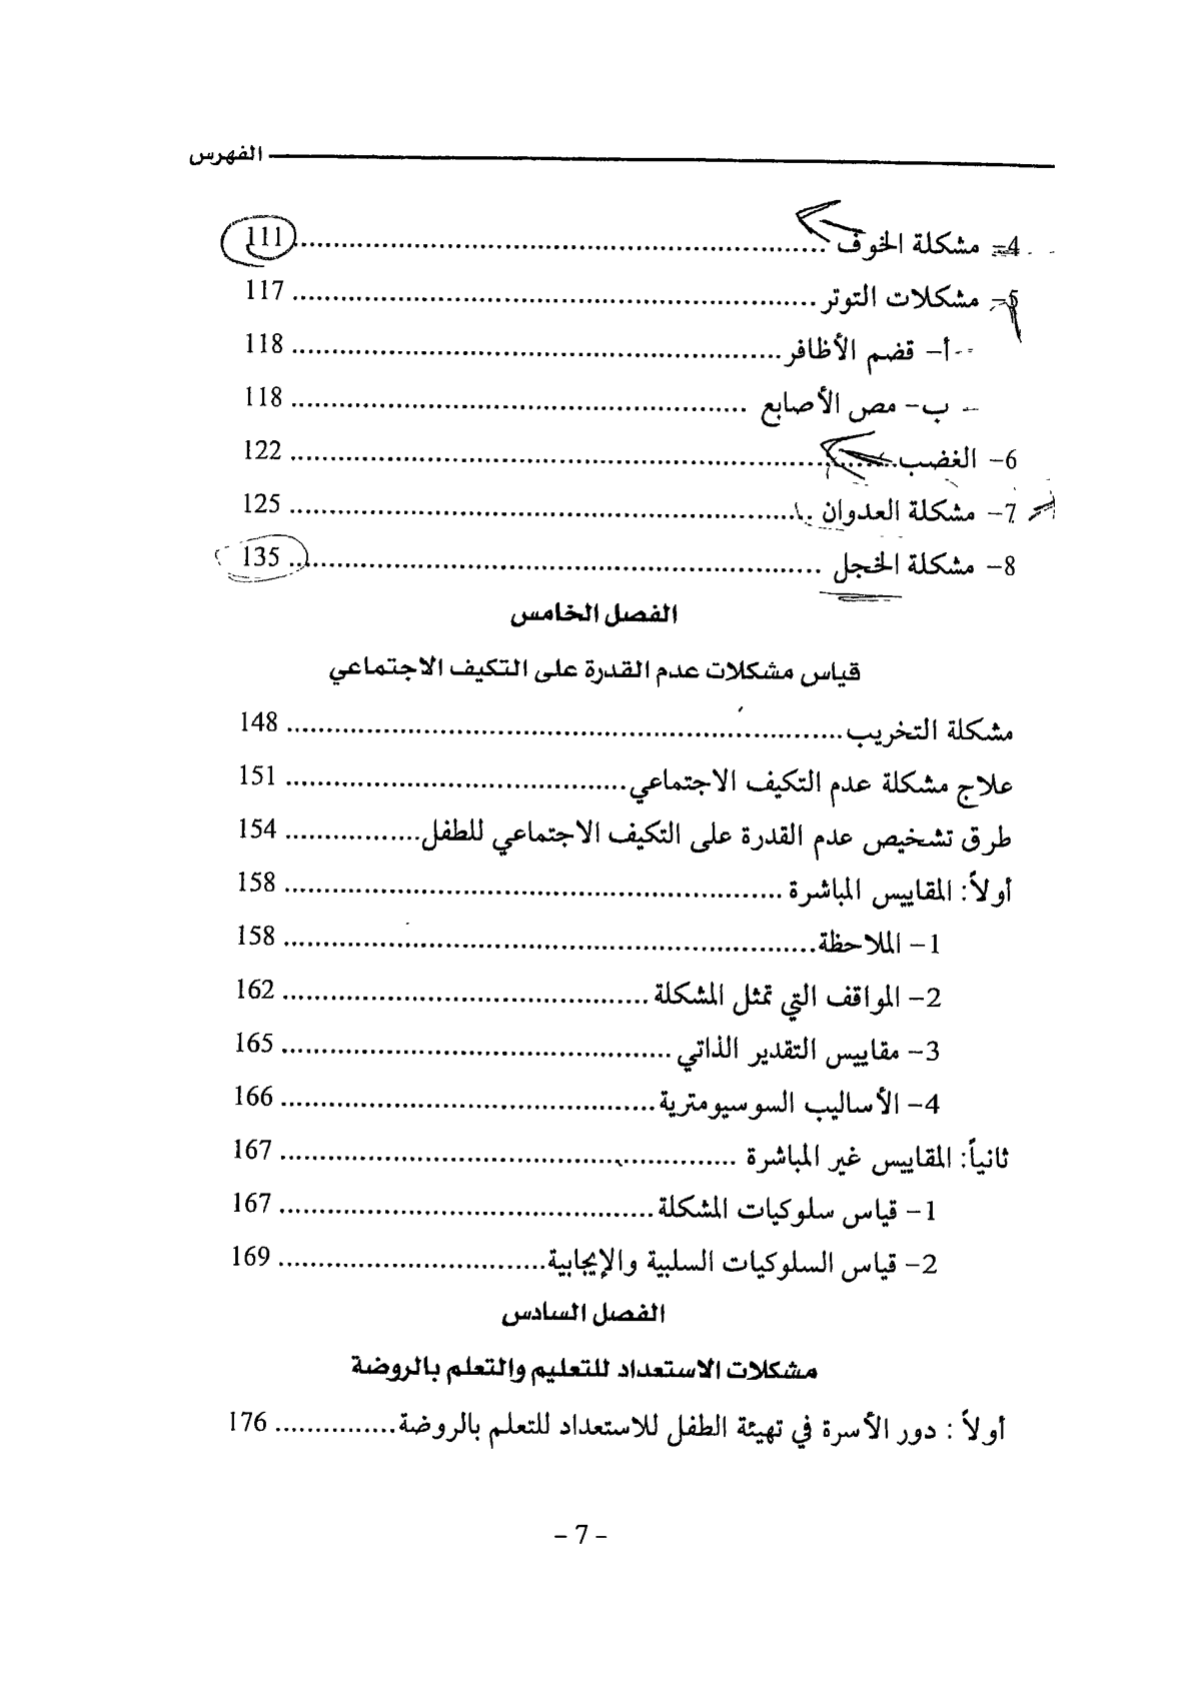 الفهرس
4- مشكلة الخوف ................................................ 111
5- مشكلات التوتر ................................................ 117
أ- قضم الأظافر ................................................ 118
ب- مص الأصابع ................................................ 118
6- الغضب ................................................ 122
7- مشكلة العدوان ................................................ 125
8- مشكلة الخجل ................................................ 135
الفصل الخامس
قياس مشكلات عدم القدرة على التكيف الاجتماعي
مشكلة التخريب ................................................ 148
علاج مشكلة عدم التكيف الاجتماعي ................................ 151
طرق تشخيص عدم القدرة على التكيف الاجتماعي للطفل ................. 154
أولاً: المقاييس المباشرة ................................................ 158
1- الملاحظة ................................................ 158
2- المواقف التي تمثل المشكلة ................................ 162
3- مقاييس التقدير الذاتي ................................ 165
4- الأساليب السوسيومترية ................................ 166
ثانياً: المقاييس غير المباشرة ................................ 167
1- قياس سلوكيات المشكلة ................................ 167
2- قياس السلوكيات السلبية والإيجابية ................................ 169
الفصل السادس
مشكلات الاستعداد للتعليم والتعلم بالروضة
أولاً : دور الأسرة في تهيئة الطفل للاستعداد للتعلم بالروضة ............... 176
- 7 -